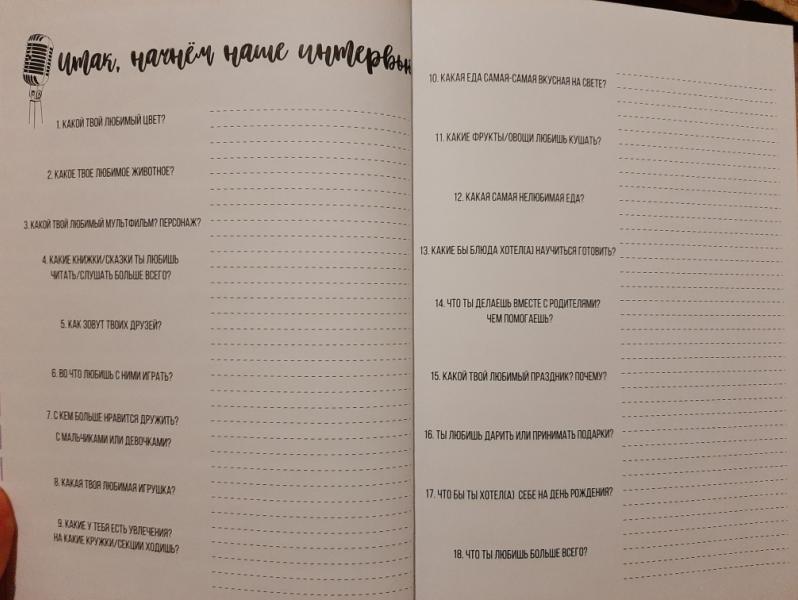 итак, начнём наше интервью
1. КАКОЙ ТВОЙ ЛЮБИМЫЙ ЦВЕТ?
2. КАКОЕ ТВОЕ ЛЮБИМОЕ ЖИВОТНОЕ?
3. КАКОЙ ТВОЙ ЛЮБИМЫЙ МУЛЬТФИЛЬМ? ПЕРСОНАЖ?
4. КАКИЕ КНИЖКИ/СКАЗКИ ТЫ ЛЮБИШЬ
ЧИТАТЬ/СЛУШАТЬ БОЛЬШЕ ВСЕГО?
5. КАК ЗОВУТ ТВОИХ ДРУЗЕЙ?
6. ВО ЧТО ЛЮБИШЬ С НИМИ ИГРАТЬ?
7. С КЕМ БОЛЬШЕ НРАВИТСЯ ДРУЖИТЬ?
С МАЛЬЧИКАМИ ИЛИ ДЕВОЧКАМИ?
8. КАКАЯ ТВОЯ ЛЮБИМАЯ ИГРУШКА?
9. КАКИЕ У ТЕБЯ ЕСТЬ УВЛЕЧЕНИЯ?
НА КАКИЕ КРУЖКИ/СЕКЦИИ ХОДИШЬ?
10. КАКАЯ ЕДА САМАЯ-САМАЯ ВКУСНАЯ НА СВЕТЕ?
11. КАКИЕ ФРУКТЫ/ОВОЩИ ЛЮБИШЬ КУШАТЬ?
12. КАКАЯ САМАЯ НЕЛЮБИМАЯ ЕДА?
13. КАКИЕ БЫ БЛЮДА ХОТЕЛ(А) НАУЧИТЬСЯ ГОТОВИТЬ?
14. ЧТО ТЫ ДЕЛАЕШЬ ВМЕСТЕ С РОДИТЕЛЯМИ?
ЧЕМ ПОМОГАЕШЬ?
15. КАКОЙ ТВОЙ ЛЮБИМЫЙ ПРАЗДНИК? ПОЧЕМУ?
16. ТЫ ЛЮБИШЬ ДАРИТЬ ИЛИ ПРИНИМАТЬ ПОДАРКИ?
17. ЧТО БЫ ТЫ ХОТЕЛ(А) СЕБЕ НА ДЕНЬ РОЖДЕНИЯ?
18. ЧТО ТЫ ЛЮБИШЬ БОЛЬШЕ ВСЕГО?